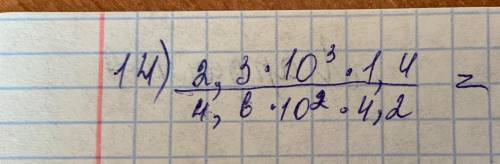 14) 2,3·10³·1,4 =
4,6·10²·4,2